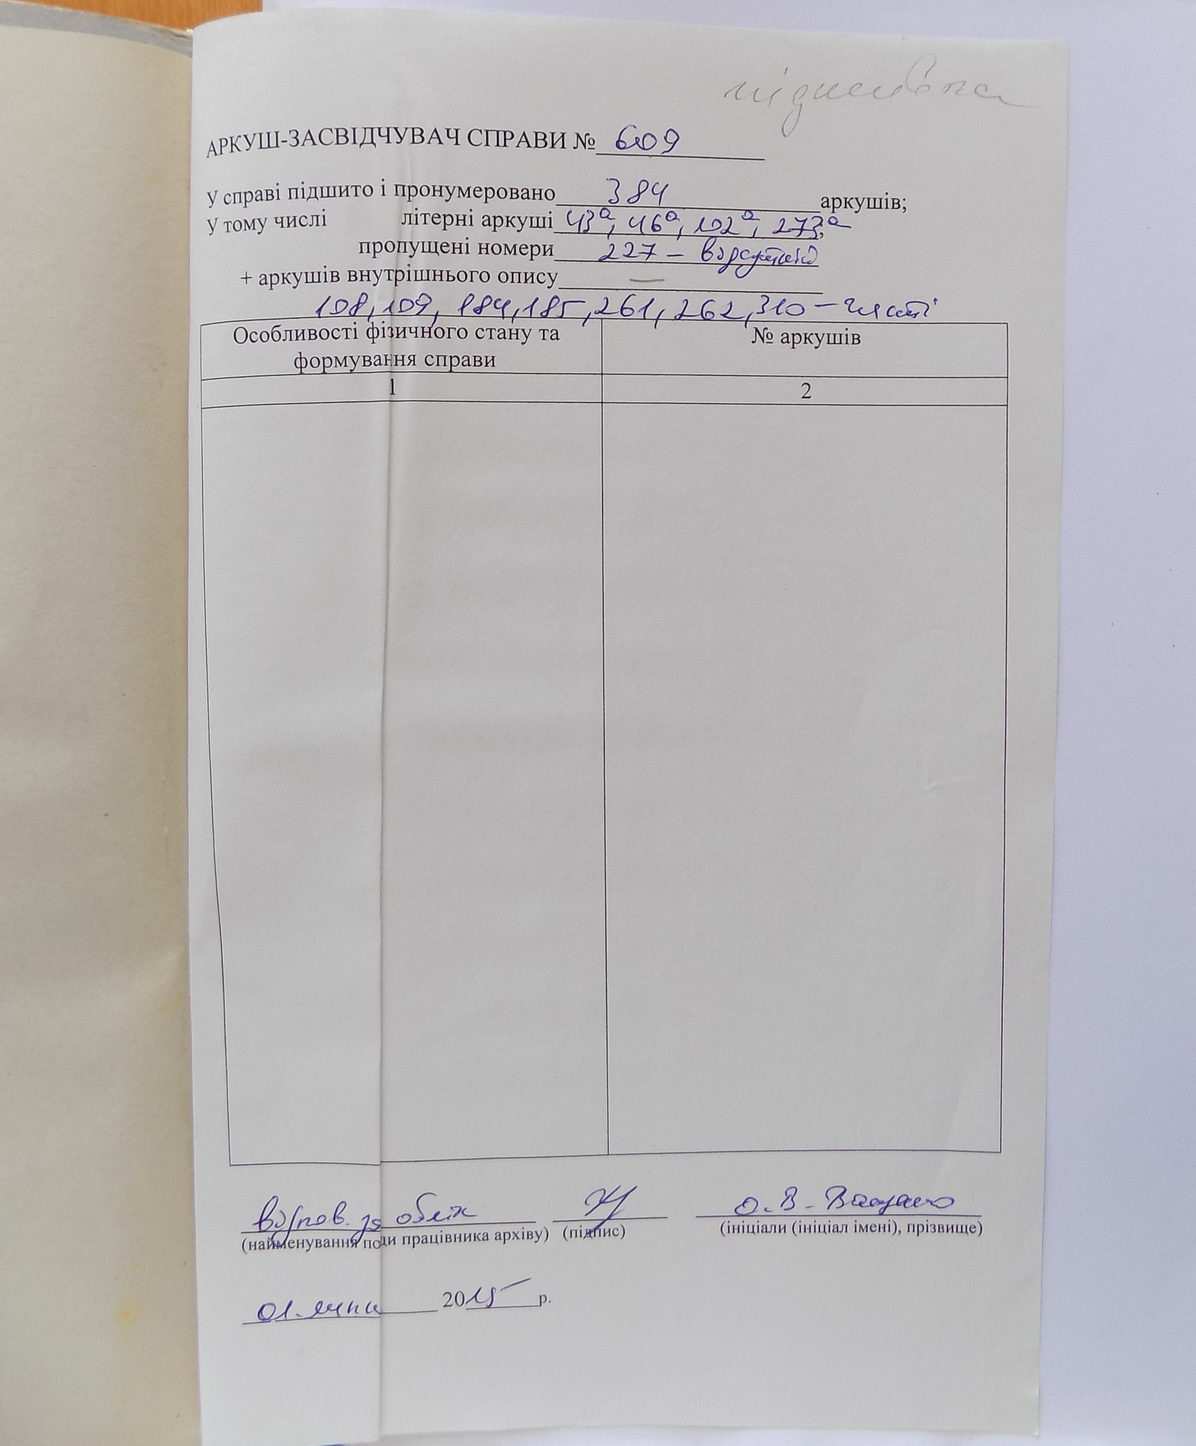 підшивка
АРКУШ-ЗАСВІДЧУВАЧ СПРАВИ № 609
У справі підшито і пронумеровано 384 аркушів;
У тому числі літерні аркуші 43а, 46а, 102а, 273а;
пропущені номери 227 – відсутній
+ аркушів внутрішнього опису —
108, 109, 184, 185, 261, 262, 310 – чисті
Особливості фізичного стану та формування справи
№ аркушів
1
2
відпов. за облік
О.В.
(найменування по ди працівника архіву) (підпис) (ініціали (ініціал імені), прізвище)
01. липн 2015 р.